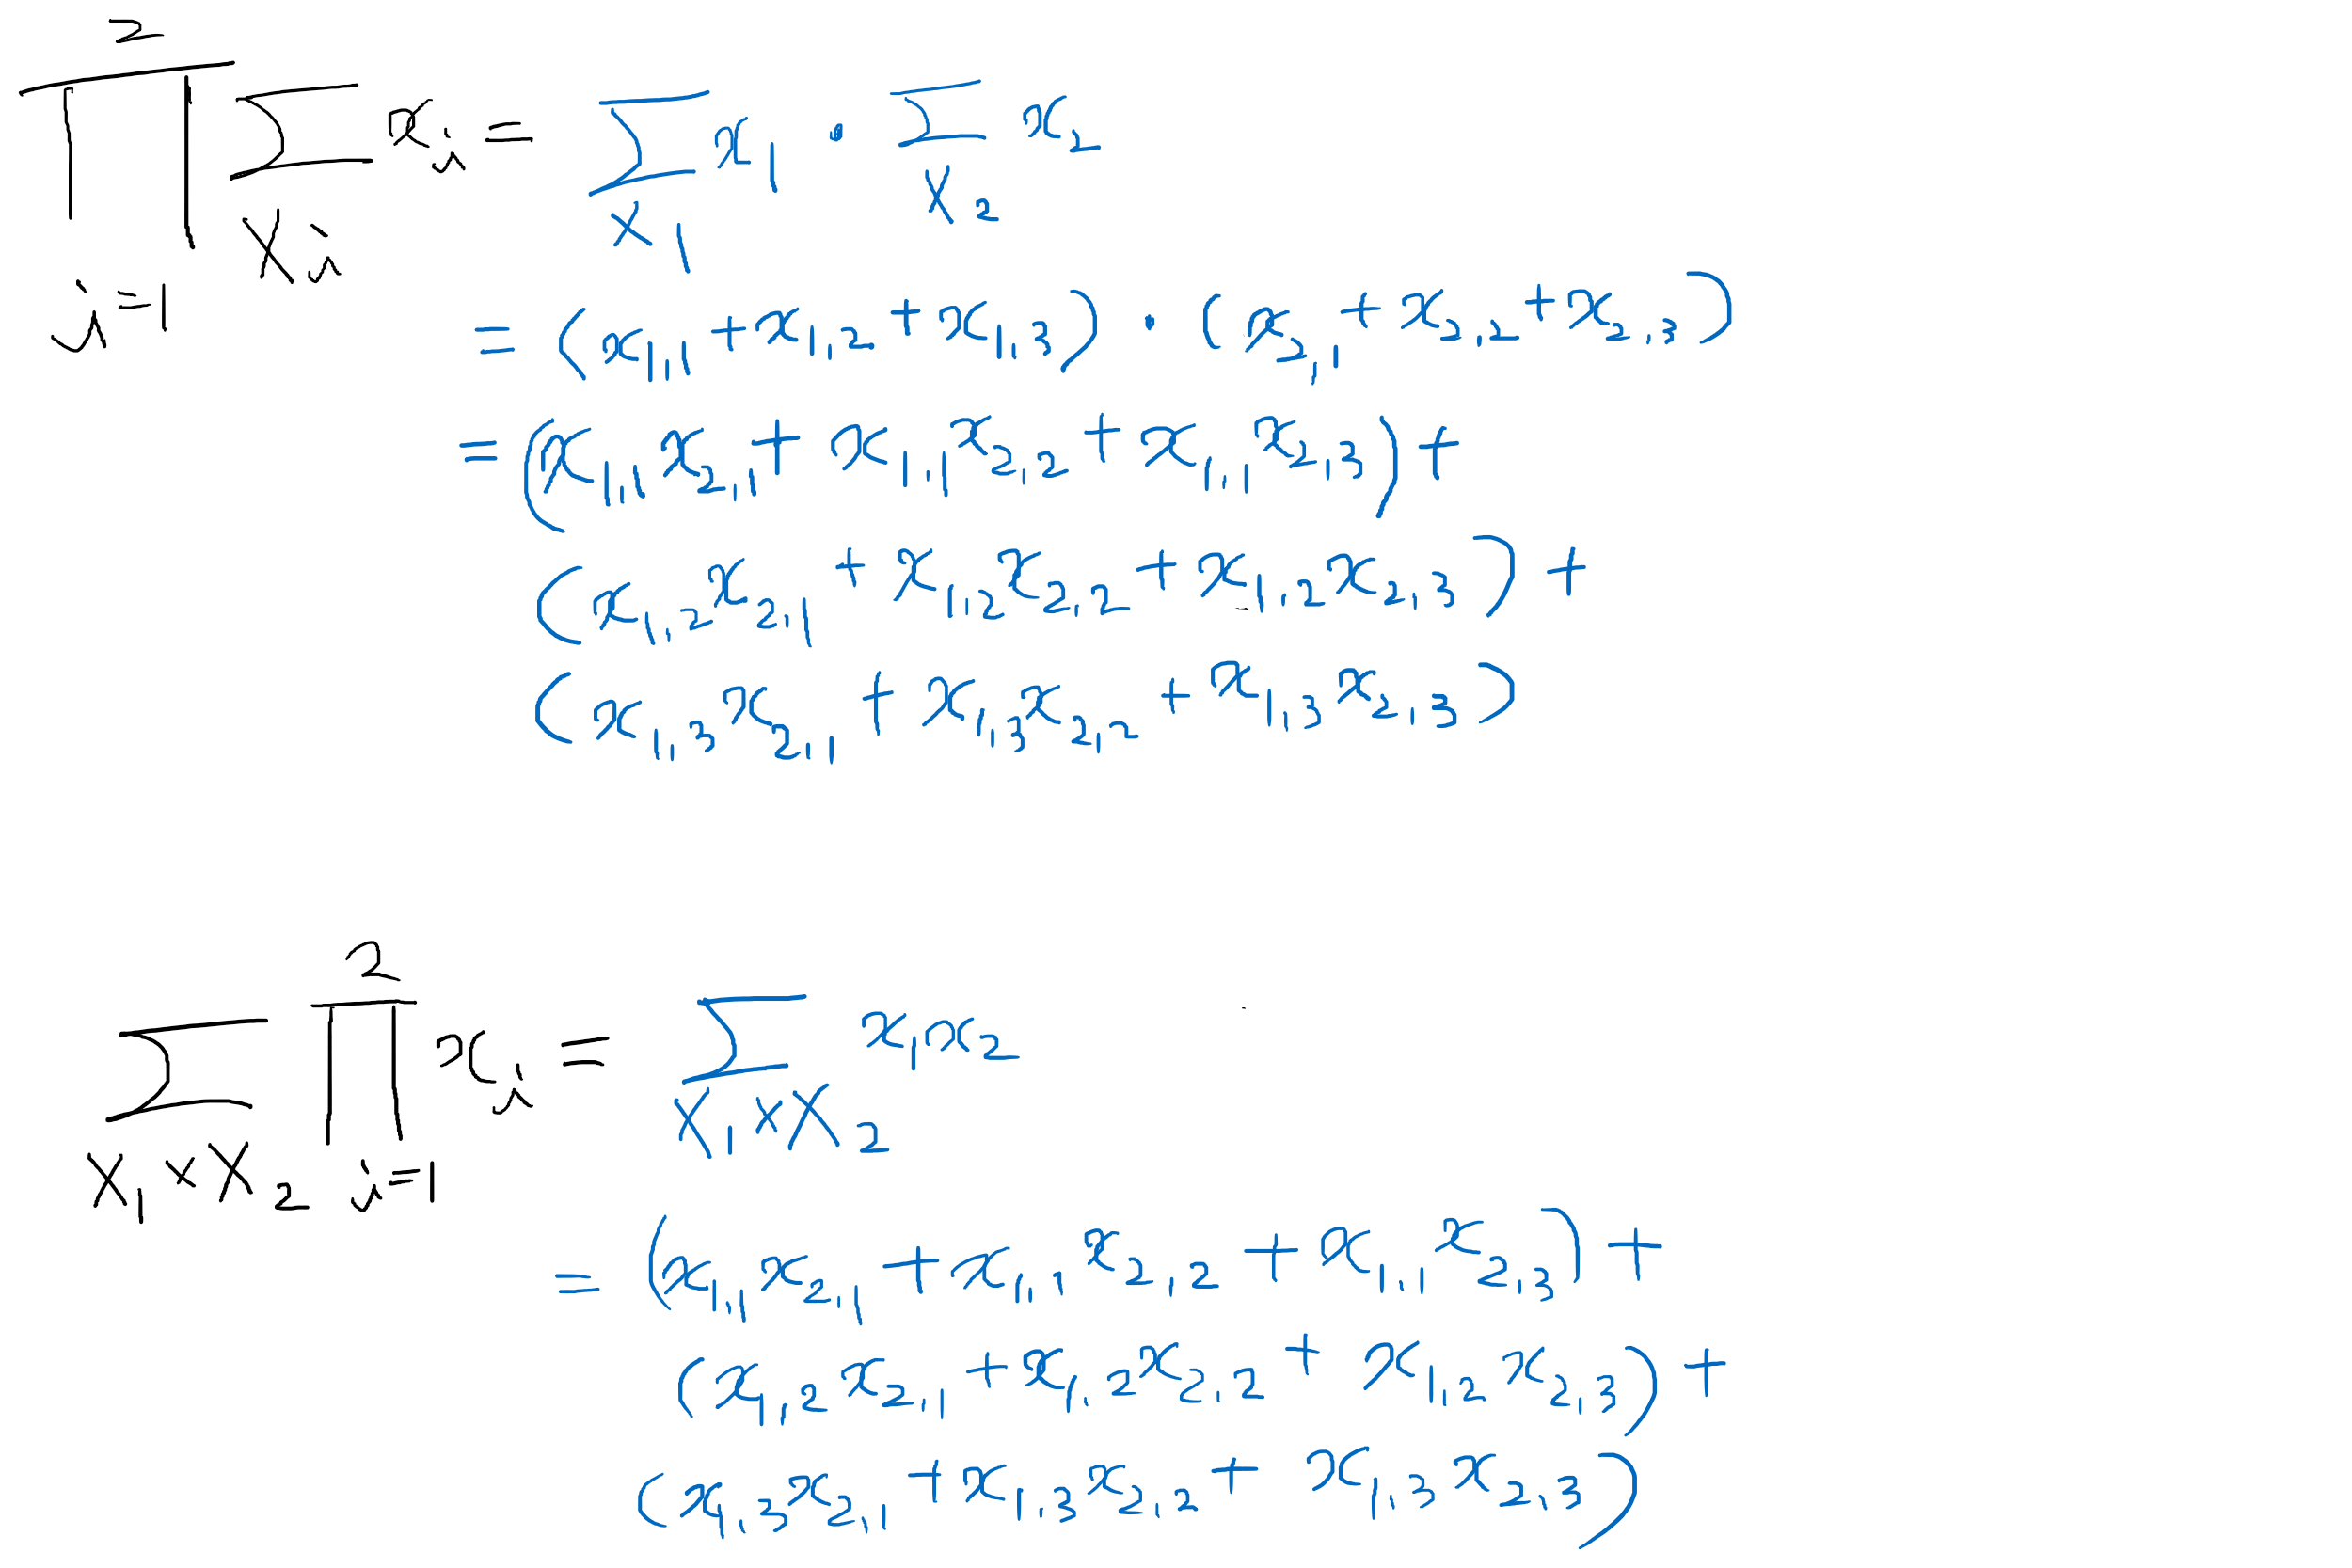 ∏_{j=1}^{2} ∑_{X_j} x_j = ∑_{X_1} x_1 · ∑_{X_2} x_2
= (x_{1,1} + x_{1,2} + x_{1,3}) · (x_{2,1} + x_{2,2} + x_{2,3})
= (x_{1,1} x_{2,1} + x_{1,1} x_{2,2} + x_{1,1} x_{2,3}) +
(x_{1,2} x_{2,1} + x_{1,2} x_{2,2} + x_{1,2} x_{2,3}) +
(x_{1,3} x_{2,1} + x_{1,3} x_{2,2} + x_{1,3} x_{2,3})
∑_{X_1 × X_2} ∏_{j=1}^{2} x_j = ∑_{X_1 × X_2} x_1 x_2
= (x_{1,1} x_{2,1} + x_{1,1} x_{2,2} + x_{1,1} x_{2,3}) +
(x_{1,2} x_{2,1} + x_{1,2} x_{2,2} + x_{1,2} x_{2,3}) +
(x_{1,3} x_{2,1} + x_{1,3} x_{2,2} + x_{1,3} x_{2,3})